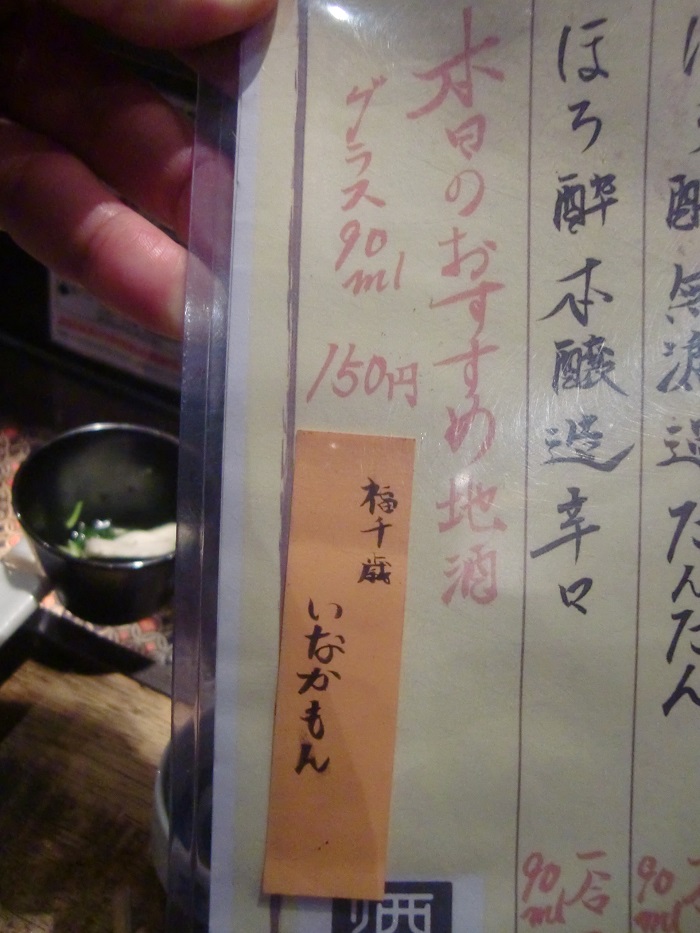 ほろ酔無濾過たんたん
90ml
ほろ酔本醸造辛口
90ml
一合
本日のおすすめ地酒
グラス90ml
150円
福千歳
いなかもん
酒